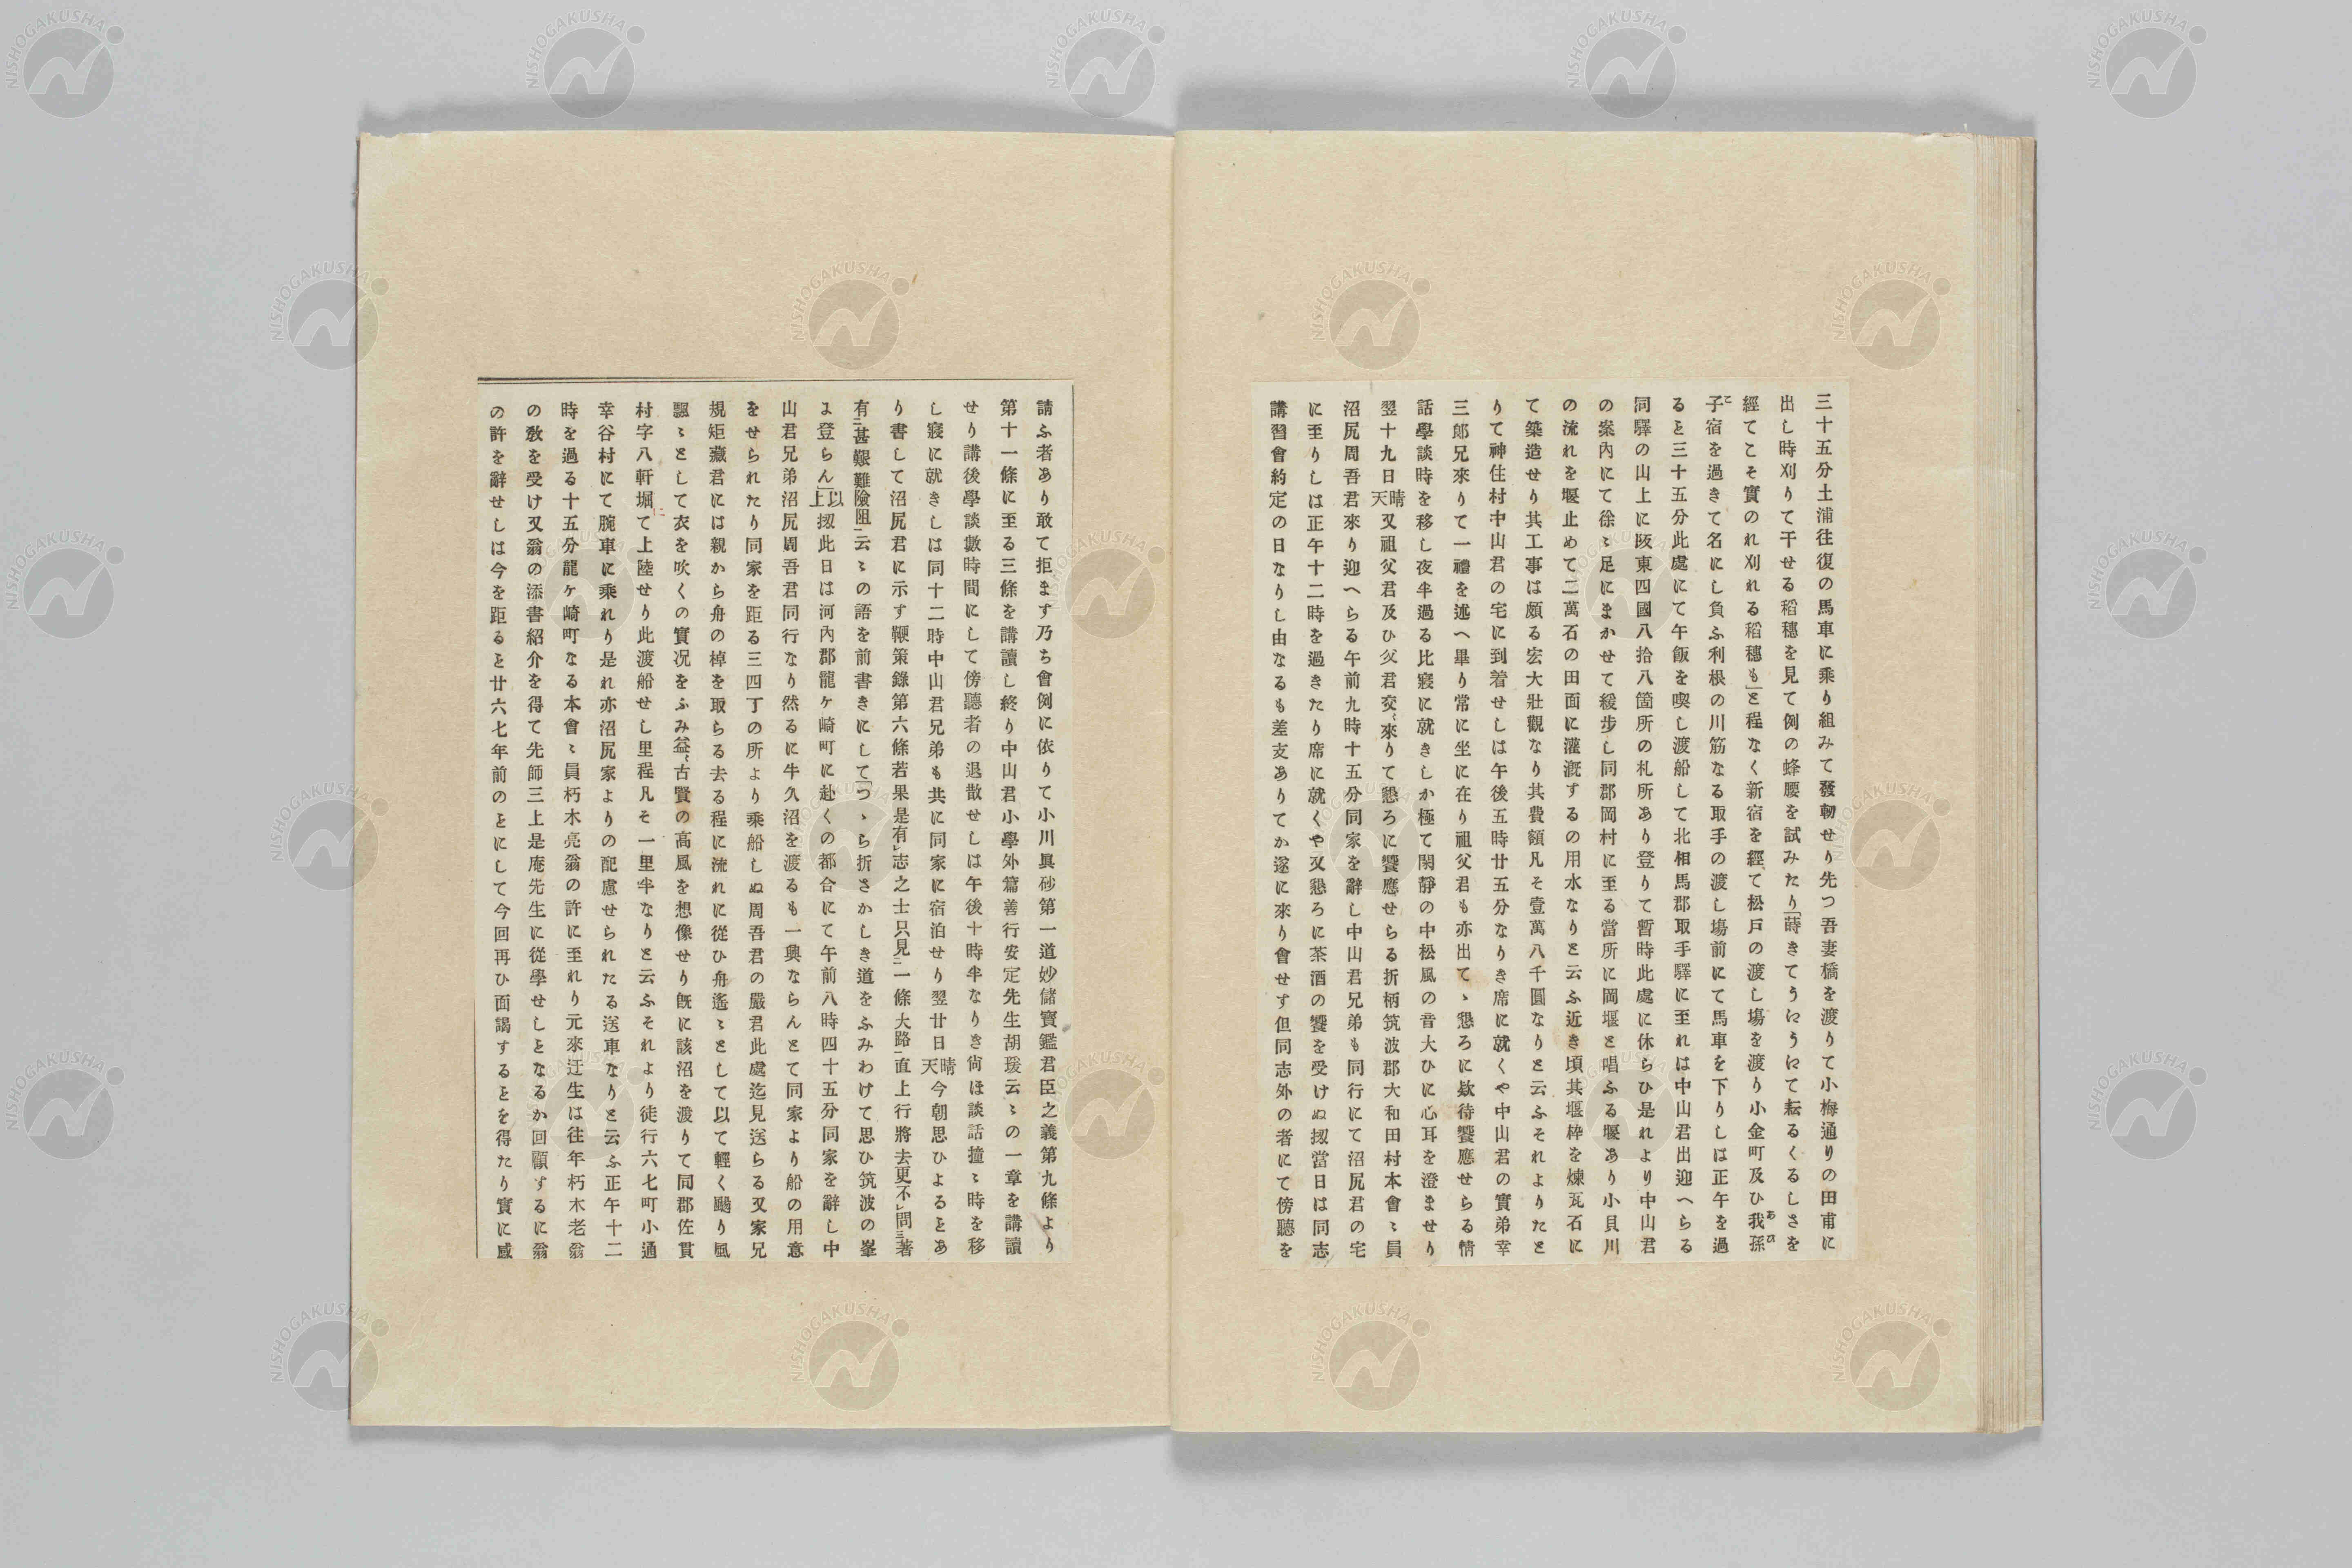 三十五分土浦往復の馬車に乘り組みて發軔せり先つ吾妻橋を渡りて小梅通りの田甫に
出し時刈りて干せる稻穗を見て例の蜂腰を試みたり「蒔きてうゑうゑて耘るくるしさを
經てこそ實のれ刈れる稻穗も」と程なく新宿を經て松戸の渡し塲を渡り小金町及ひ我孫
子宿を過きて名にし負ふ利根の川筋なる取手の渡し塲前にて馬車を下りしは正午を過
るヿ三十五分此處にて午飯を喫し渡船して北相馬郡取手驛に至れは中山君出迎へらる
同驛の山上に阪東四國八拾八箇所の札所あり登りて暫時此處に休らひ是れより中山君
の案內にて徐〻足にまかせて緩步し同郡岡村に至る當所に岡堰と唱ふる堰あり小貝川
の流れを堰止めて二萬石の田面に灌漑するの用水なりと云ふ近き頃其堰枠を煉瓦石に
て築造せり其工事は頗る宏大壯觀なり其費額凡そ壹萬八千圓なりと云ふそれよりたと
りて神住村中山君の宅に到着せしは午後五時廿五分なりき席に就くや中山君の實弟幸
三郞兄來りて一禮を述へ畢り常に坐に在り祖父君も亦出てゝ懇ろに欵待饗應せらる情
話學談時を移し夜半過る比寢に就きしか極て閑靜の中松風の音大ひに心耳を澄ませり
翌十九日晴天又祖父君及ひ父君交〻來りて懇ろに饗應せらる折柄筑波郡大和田村本會〻員
沼尻周吾君來り迎へらる午前九時十五分同家を辭し中山君兄弟も同行にて沼尻君の宅
に至りしは正午十二時を過きたり席に就くや又懇ろに茶酒の饗を受けぬ扨當日は同志
講習會約定の日なりし由なるも差支ありてか遂に來り會せす但同志外の者にて傍聽を
請ふ者あり敢て拒ます乃ち會例に依りて小川眞砂第一道妙儲寶鑑君臣之義第九條より
第十一條に至る三條を講讀し終り中山君小學外篇善行安定先生胡瑗云〻の一章を講讀
せり講後學談數時間にして傍聽者の退散せしは午後十時半なりき尙ほ談話撞〻時を移
し寢に就きしは同十二時中山君兄弟も共に同家に宿泊せり翌廿日晴天今朝思ひよるヿあ
り書して沼尻君に示す鞭策錄第六條若果是有㆑志之士只見㆓一條大路㆒直上行將去更不㆑問㆔著
有㆓甚艱難險阻㆒云〻の語を前書きにして「つゝら折さかしき道をふみわけて思ひ筑波の峯
に登らん」以上扨此日は河內郡龍ケ崎町に赴くの都合にて午前八時四十五分同家を辭し中
山君兄弟沼尻周吾君同行なり然るに牛久沼を渡るも一興ならんとて同家より船の用意
をせられたり同家を距る三四丁の所より乘船しぬ周吾君の嚴君此處迄見送らる又家兄
規矩藏君には親から舟の棹を取らる去る程に流れに從ひ舟遙〻として以て輕く颺り風
飄〻として衣を吹くの實况をふみ益〻古賢の高風を想像せり旣に該沼を渡りて同郡佐貫
村字八軒堀にて上陸せり此渡船せし里程凡そ一里半なりと云ふそれより徒行六七町小通
幸谷村にて腕車に乘れり是れ亦沼尻家よりの配慮せられたる送車なりと云ふ正午十二
時を過る十五分龍ケ崎町なる本會〻員朽木亮翁の許に至れり元來迂生は往年朽木老翁
の敎を受け又翁の添書紹介を得て先師三上是庵先生に從學せしヿなるか回顧するに翁
の許を辭せしは今を距るヿ廿六七年前のヿにして今回再ひ面謁するヿを得たり實に感